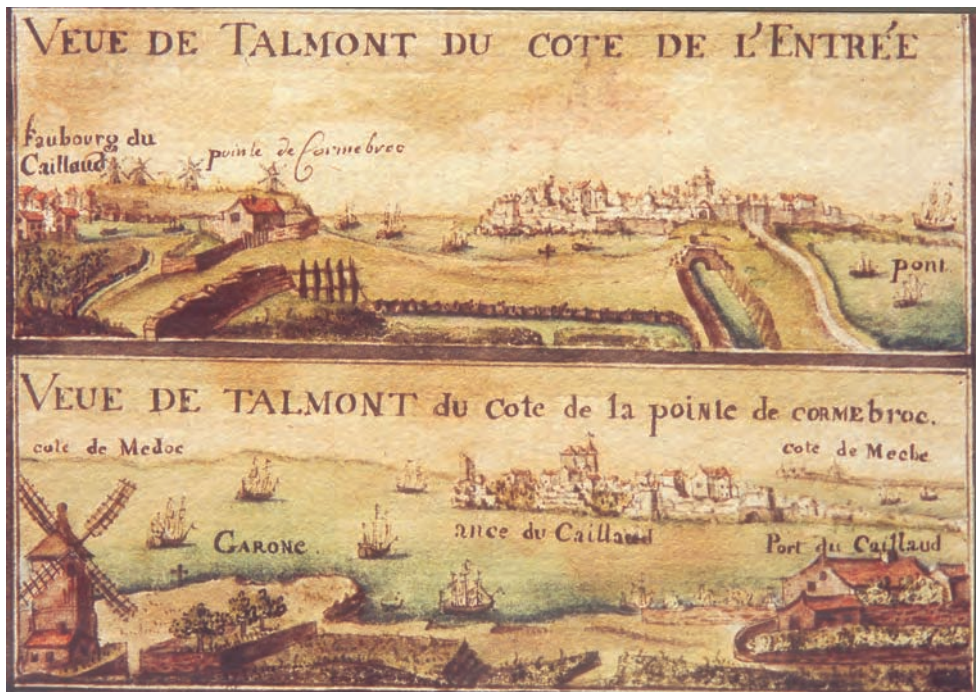 VEUE DE TALMONT DU COTE DE L'ENTRÉE
Faubourg du
Caillaud
pointe de Cormebroc
pont
VEUE DE TALMONT du cote de la pointe de CORMEbroc.
cote de Medoc
cote de Meche
GARONE.
ance du Caillaud
Port du Caillaud